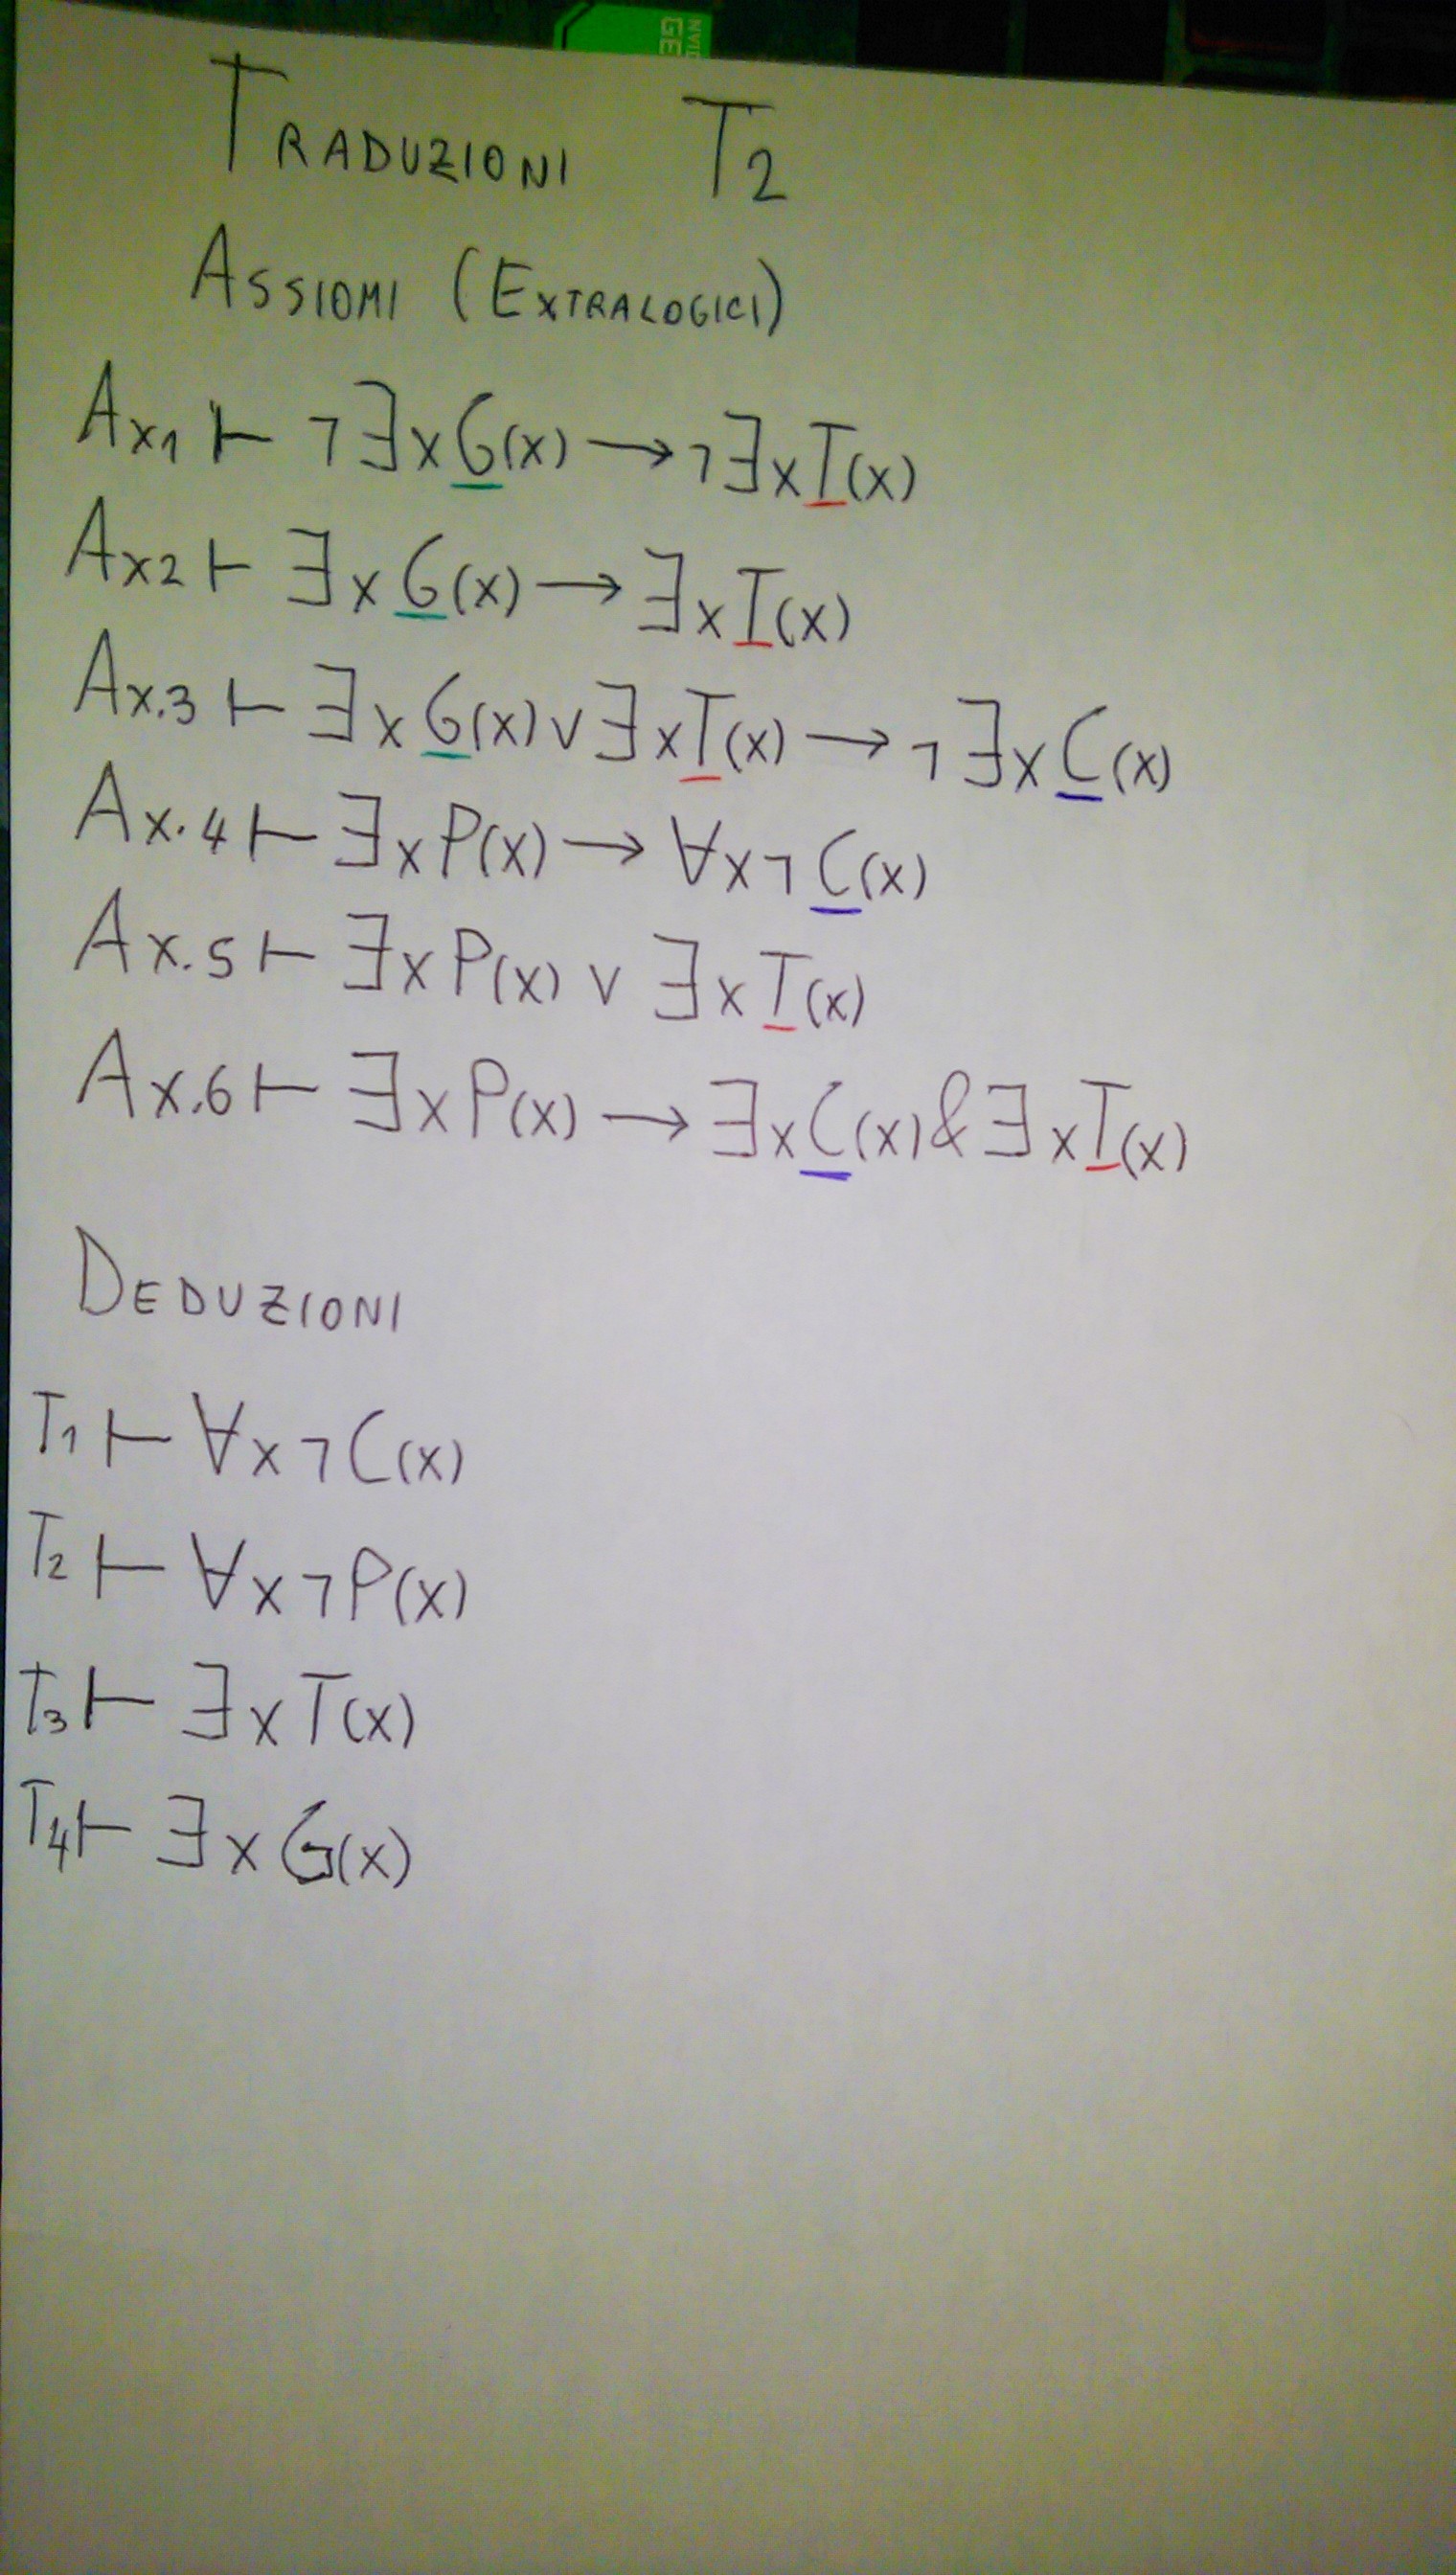 GE
TRADUZIONI T2
ASSIOMI (EXTRALOGICI)
Ax1 ⊢ ¬∃x G(x) → ¬∃x T(x)
Ax2 ⊢ ∃x G(x) → ∃x T(x)
Ax.3 ⊢ ∃x G(x) ∨ ∃x T(x) → ¬∃x C(x)
Ax.4 ⊢ ∃x P(x) → ∀x ¬C(x)
Ax.5 ⊢ ∃x P(x) ∨ ∃x T(x)
Ax.6 ⊢ ∃x P(x) → ∃x C(x) & ∃x T(x)
DEDUZIONI
T1 ⊢ ∀x ¬C(x)
T2 ⊢ ∀x ¬P(x)
T3 ⊢ ∃x T(x)
T4 ⊢ ∃x G(x)